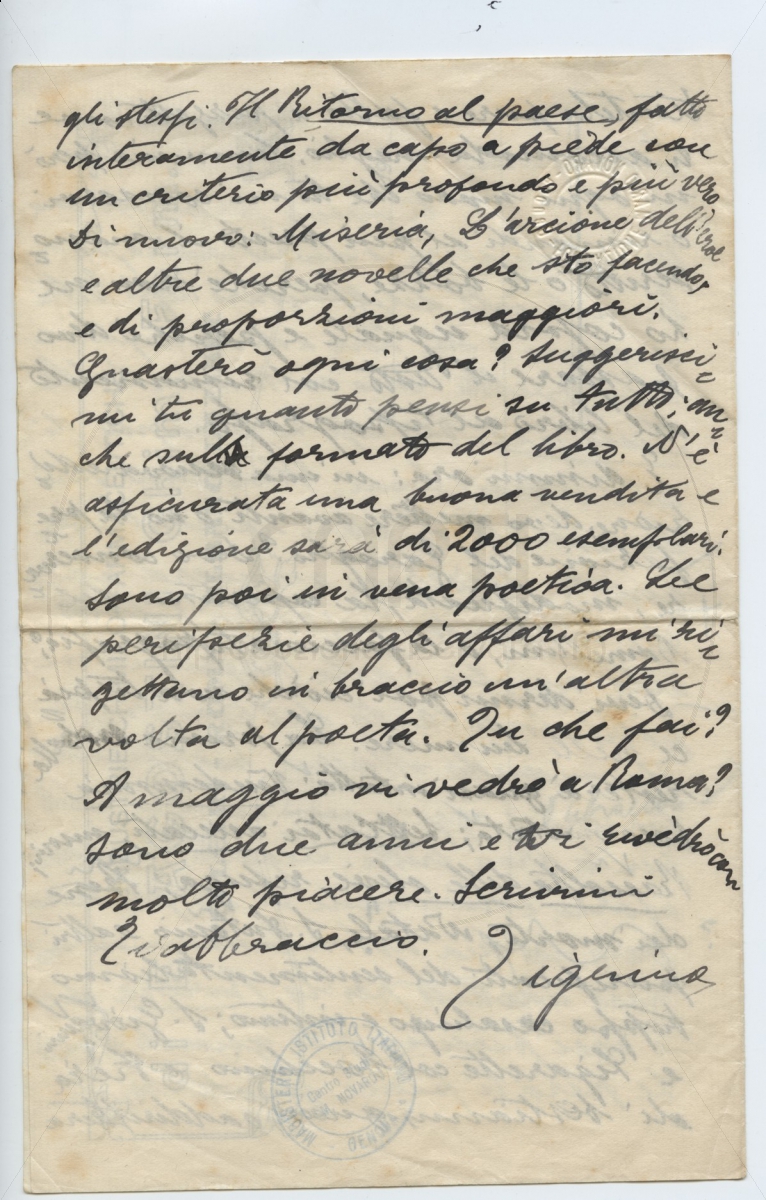 gli stessi. Il Ritorno al paese, fatto
interamente da capo a piede con
un criterio più profondo e più vero
Di nuovo: Miseria, L'arcione dell'Eroe
e altre due novelle che sto facendo,
e di proporzioni maggiori.
Guasterò ogni cosa? Suggerisci=
mi tu quanto pensi su tutto, an=
che sul formato del libro. N'è
assicurata una buona vendita e
l'edizione sarà di 2000 esemplari.
Sono poi in vena poetica. Le
peripezie degli affari mi ri=
gettano in braccio un'altra
volta al poeta. Tu che fai?
A maggio vi vedrò a Roma?
sono due anni e ti rivedrò con
molto piacere. Scrivimi
Ti abbraccio.
Tigrino
MAGISTERO ISTITUTO
GENOVA